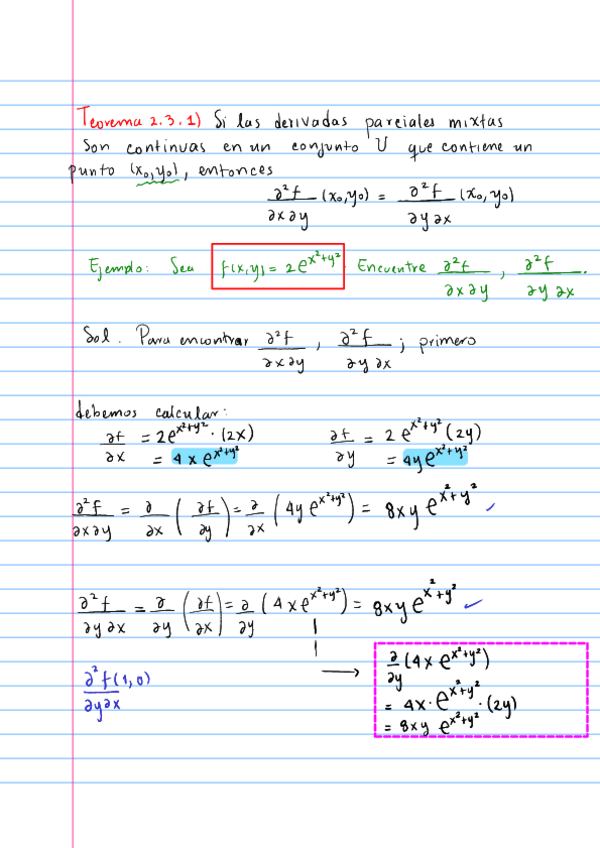 Teorema 2.3.1) Si las derivadas parciales mixtas
son continuas en un conjunto U que contiene un
punto (x₀,y₀), entonces
∂²f/∂x∂y (x₀,y₀) = ∂²f/∂y∂x (x₀,y₀)
Ejemplo: Sea f(x,y) = 2e^(x²+y²). Encuentre ∂²f/∂x∂y , ∂²f/∂y∂x.
Sol. Para encontrar ∂²f/∂x∂y , ∂²f/∂y∂x ; primero
debemos calcular:
∂f/∂x = 2e^(x²+y²) · (2x) ∂f/∂y = 2e^(x²+y²) (2y)
= 4xe^(x²+y²) = 4ye^(x²+y²)
∂²f/∂x∂y = ∂/∂x (∂f/∂y) = ∂/∂x (4ye^(x²+y²)) = 8xye^(x²+y²) ✓
∂²f/∂y∂x = ∂/∂y (∂f/∂x) = ∂/∂y (4xe^(x²+y²)) = 8xye^(x²+y²) ✓
∂²f(1,0)/∂y∂x
→ ∂/∂y (4xe^(x²+y²))
= 4x·e^(x²+y²)·(2y)
= 8xy e^(x²+y²)